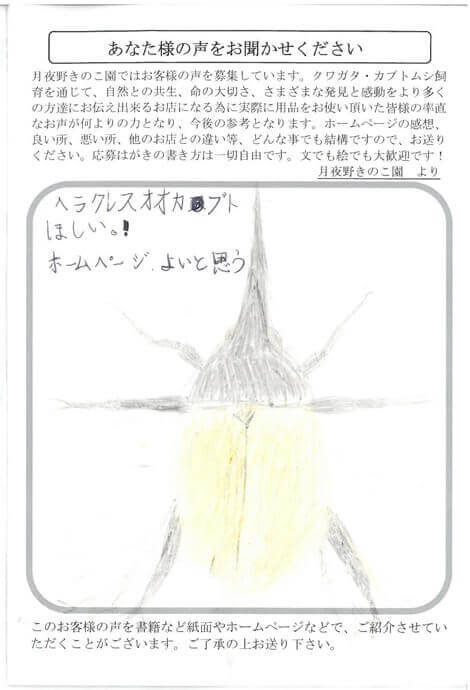 あなた様の声をお聞かせください
月夜野きのこ園ではお客様の声を募集しています。クワガタ・カブトムシ飼
育を通じて、自然との共生、命の大切さ、さまざまな発見と感動をより多く
の方達にお伝え出来るお店になる為に実際に用品をお使い頂いた皆様の率直
なお声が何よりの力となり、今後の参考となります。ホームページの感想、
良い所、悪い所、他のお店との違い等、どんな事でも結構ですので、お送り
ください。応募はがきの書き方は一切自由です。文でも絵でも大歓迎です！
月夜野きのこ園　より
ヘラクレスオオカブト
ほしい。!
ホームページ.よいと思う
このお客様の声を書籍など紙面やホームページなどで、ご紹介させてい
ただくことがございます。ご了承の上お送り下さい。